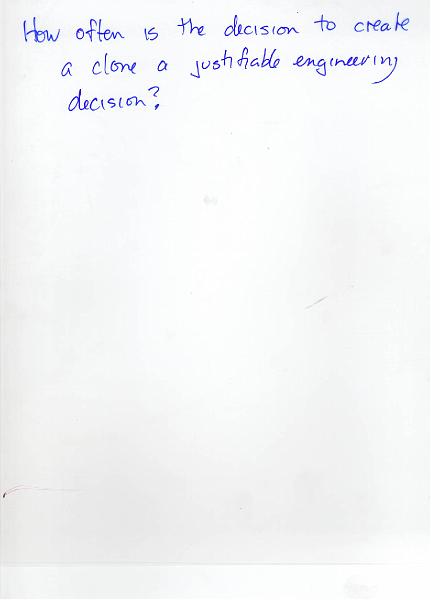 How often is the decision to create
a clone a justifiable engineering
decision?